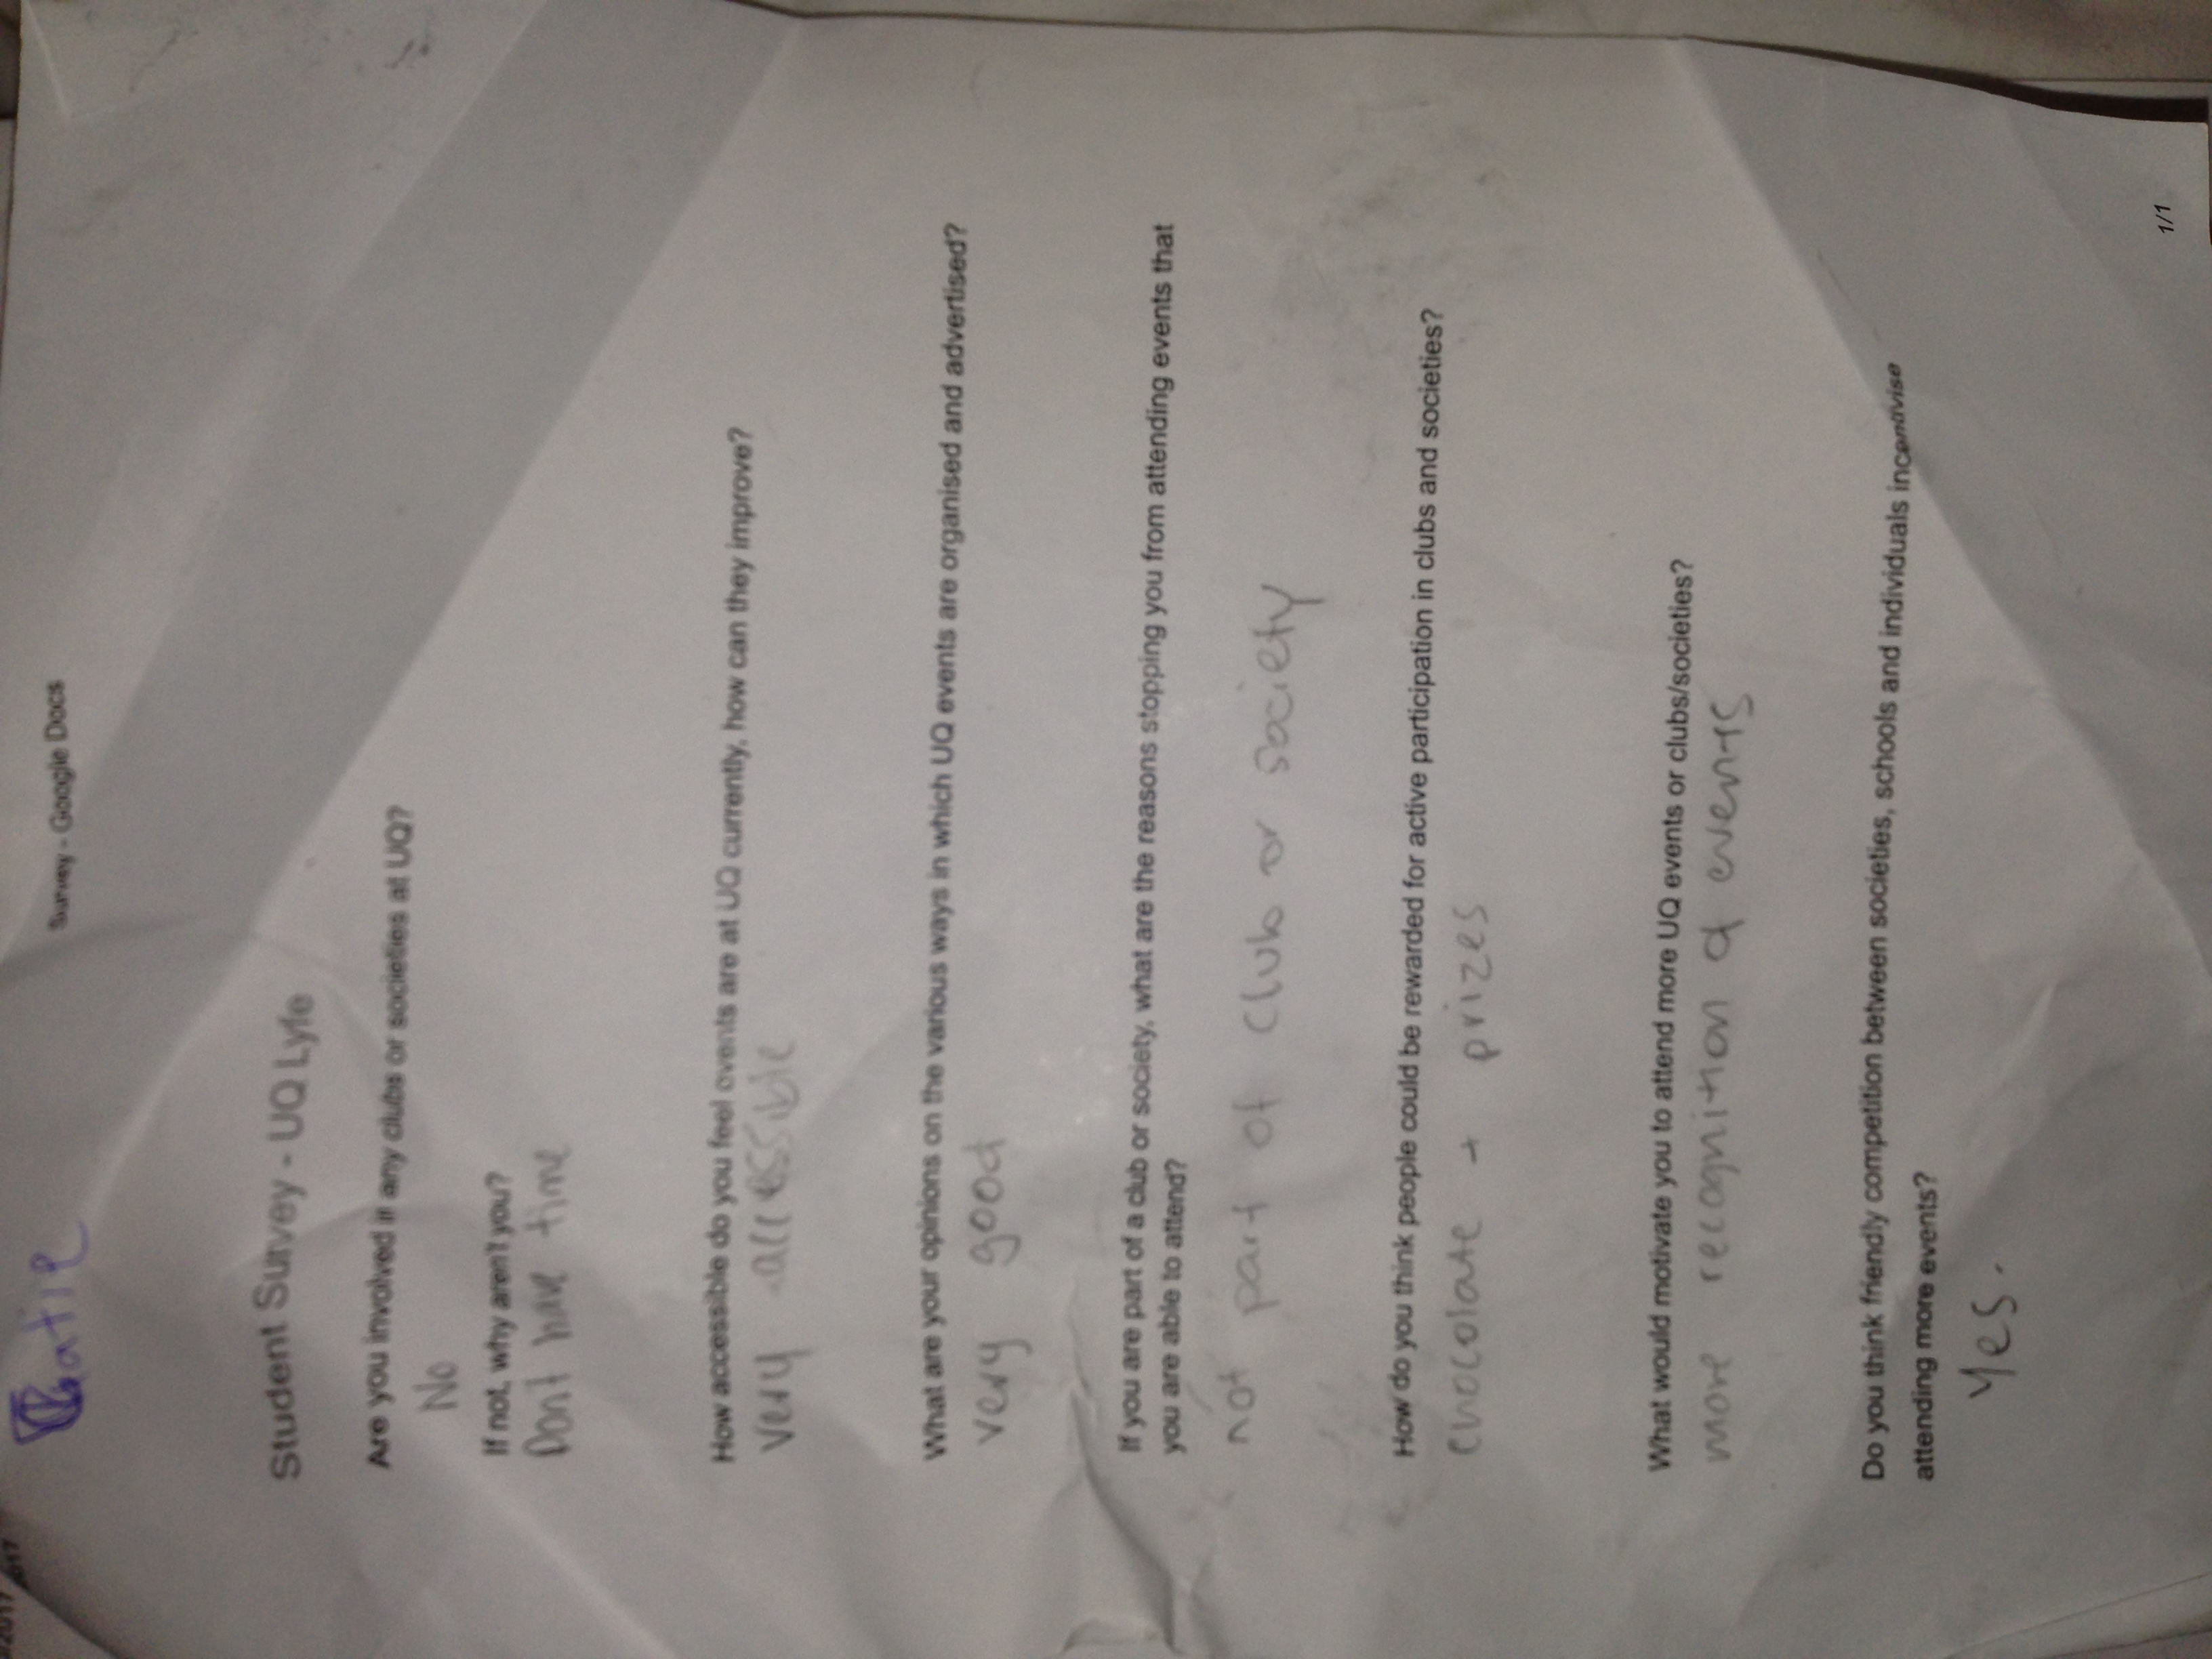 Survey - Google Docs
Student Survey - UQ Lyfe
Are you involved if any clubs or societies at UQ?
No
If not, why aren't you?
Dont have time
How accessible do you feel events are at UQ currently, how can they improve?
very accessible
What are your opinions on the various ways in which UQ events are organised and advertised?
very good
If you are part of a club or society, what are the reasons stopping you from attending events that
you are able to attend?
not part of club or society
How do you think people could be rewarded for active participation in clubs and societies?
chocolate + prizes
What would motivate you to attend more UQ events or clubs/societies?
more recognition of events
Do you think friendly competition between societies, schools and individuals
attending more events?
Yes.
1/1